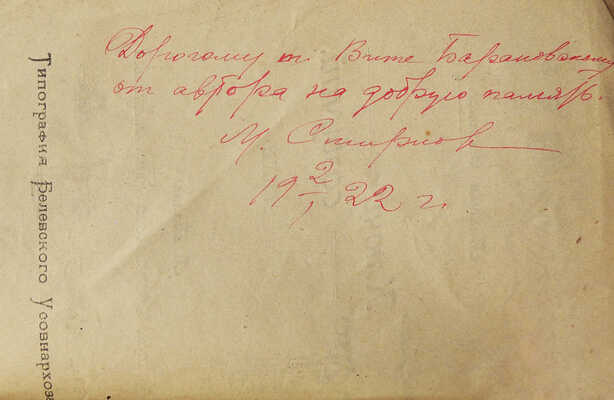 Дорогому т. Вите Барановскому
от автора на добрую память.
М. Смирнов
19 2/1 22 г.
Типография Белевского Усовнархоза